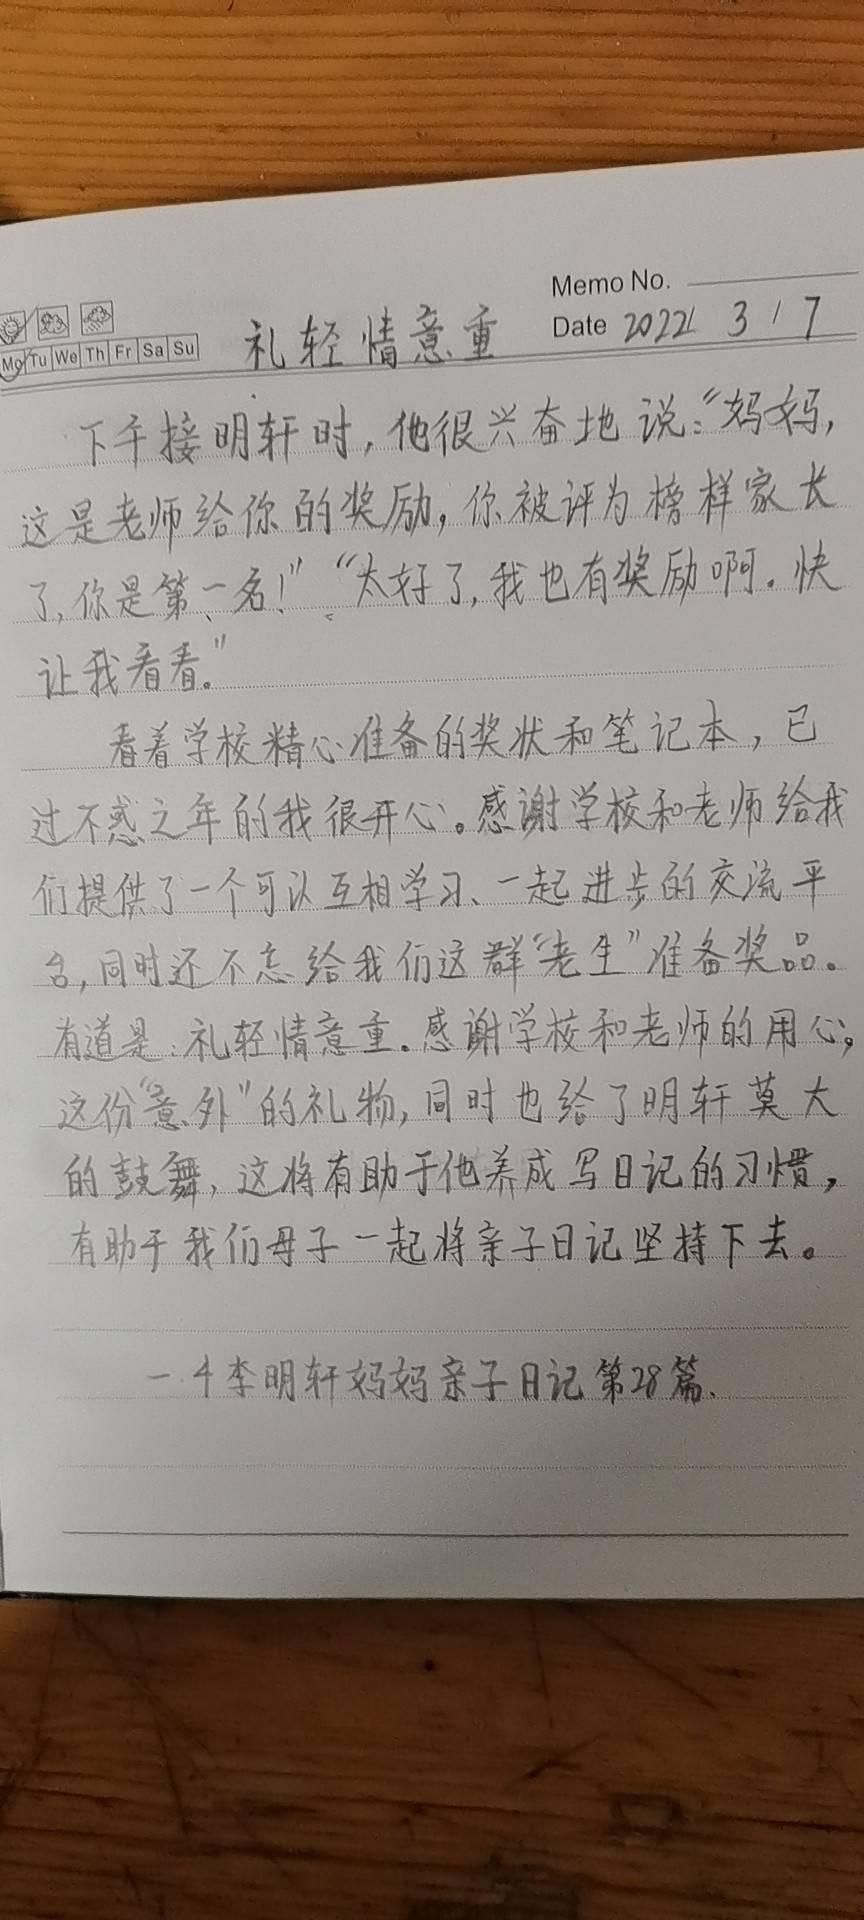 Memo No.
Mo Tu We Th Fr Sa Su
礼轻情意重
Date 2022 / 3 / 7
下午接明轩时,他很兴奋地说:“妈妈,
这是老师给你的奖励,你被评为榜样家长
了,你是第一名!”“太好了,我也有奖励啊。快
让我看看。”
看着学校精心准备的奖状和笔记本,已
过不惑之年的我很开心。感谢学校和老师给我
们提供了一个可以互相学习、一起进步的交流平
台,同时还不忘给我们这群“老生”准备奖品。
有道是:礼轻情意重。感谢学校和老师的用心,
这份“意外”的礼物,同时也给了明轩莫大
的鼓舞,这将有助于他养成写日记的习惯,
有助于我们母子一起将亲子日记坚持下去。
一.4李明轩妈妈亲子日记第28篇.